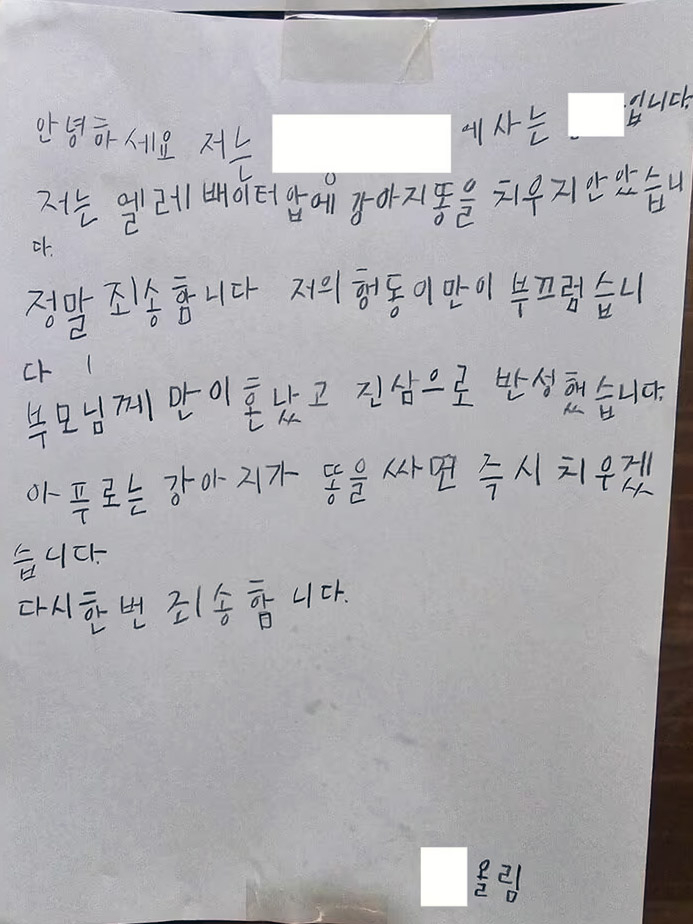 안녕하세요 저는 에 사는 입니다.
저는 엘레배이터 압에 강아지똥을 치우지안았습니
다.
정말 죄송합니다 저의 행동이만이 부끄럽습니
다
부모님께 만이 혼났고 진삼으로 반성했습니다.
아푸로는 강아지가 똥을 싸면 즉시 치우겠
습니다.
다시한번 죄송합니다.
올림